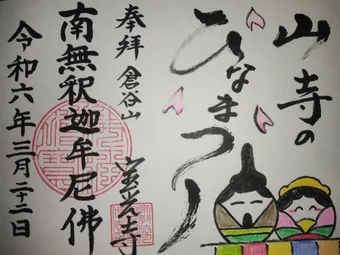 山寺の
ひなまつり
奉拝 倉谷山
宝光寺
南無釈迦牟尼佛
令和六年三月二十二日